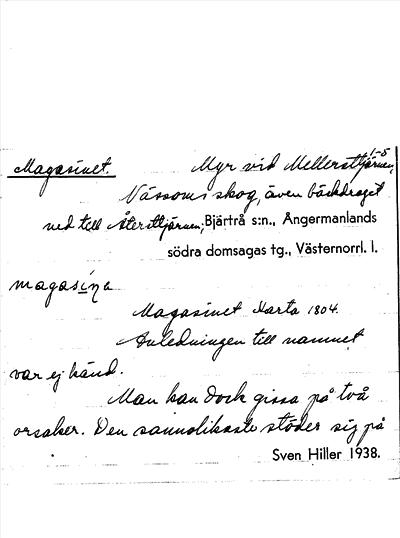 1-5
Magasinet. Myr vid Mellersttjärnen,
Nässoms skog, även bäckdraget
ned till Återsttjärnen; Bjärtrå s:n., Ångermanlands
södra domsagas tg., Västernorrl. l.
magasina
Magasinet Karta 1804.
Anledningen till namnet
var ej känd.
Man kan dock gissa på två
orsaker. Den sannolikaste stöder sig på
Sven Hiller 1938.